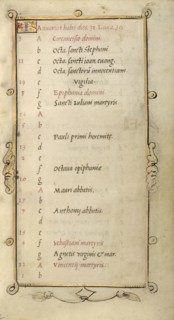 Ianuarius habet dies xxxi Luna xxx
3 A Circuncisio domini.
b Octa. sancti stephani
11 c Octa. sancti ioan. euang.
d Octa. sanctorū innocentum
e Vigilia
f Epiphania domini
g Sancti Iuliani martyris.
A
b
c Pauli primi heremitę
d
e
f Octaua epiphanie
g
A Mauri abbatis.
b
c Anthonij abbatis.
d
e
f Sebastiani martyris
g Agnetis virginis & mar.
A Vincentij martyris.
b